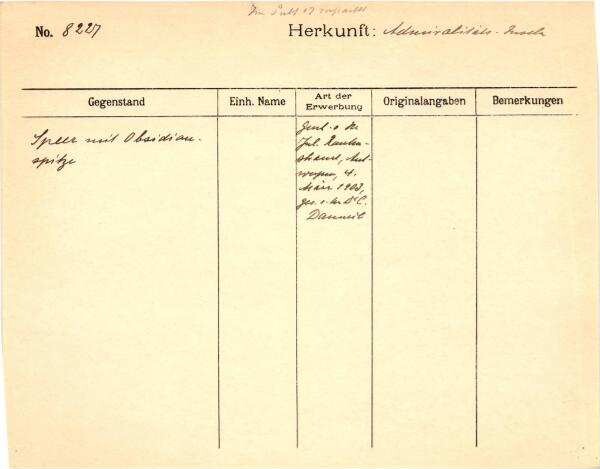 No. 8227
Herkunft: Admiralitäts-Inseln
Gegenstand
Einh. Name
Art der Erwerbung
Originalangaben
Bemerkungen
Speer mit Obsidian-
spitze
Gesch. v. Hr.
Jul.
Ant-
werpen, 4.
März 1903,
ges. v. Hr. Dr C.
Danneil